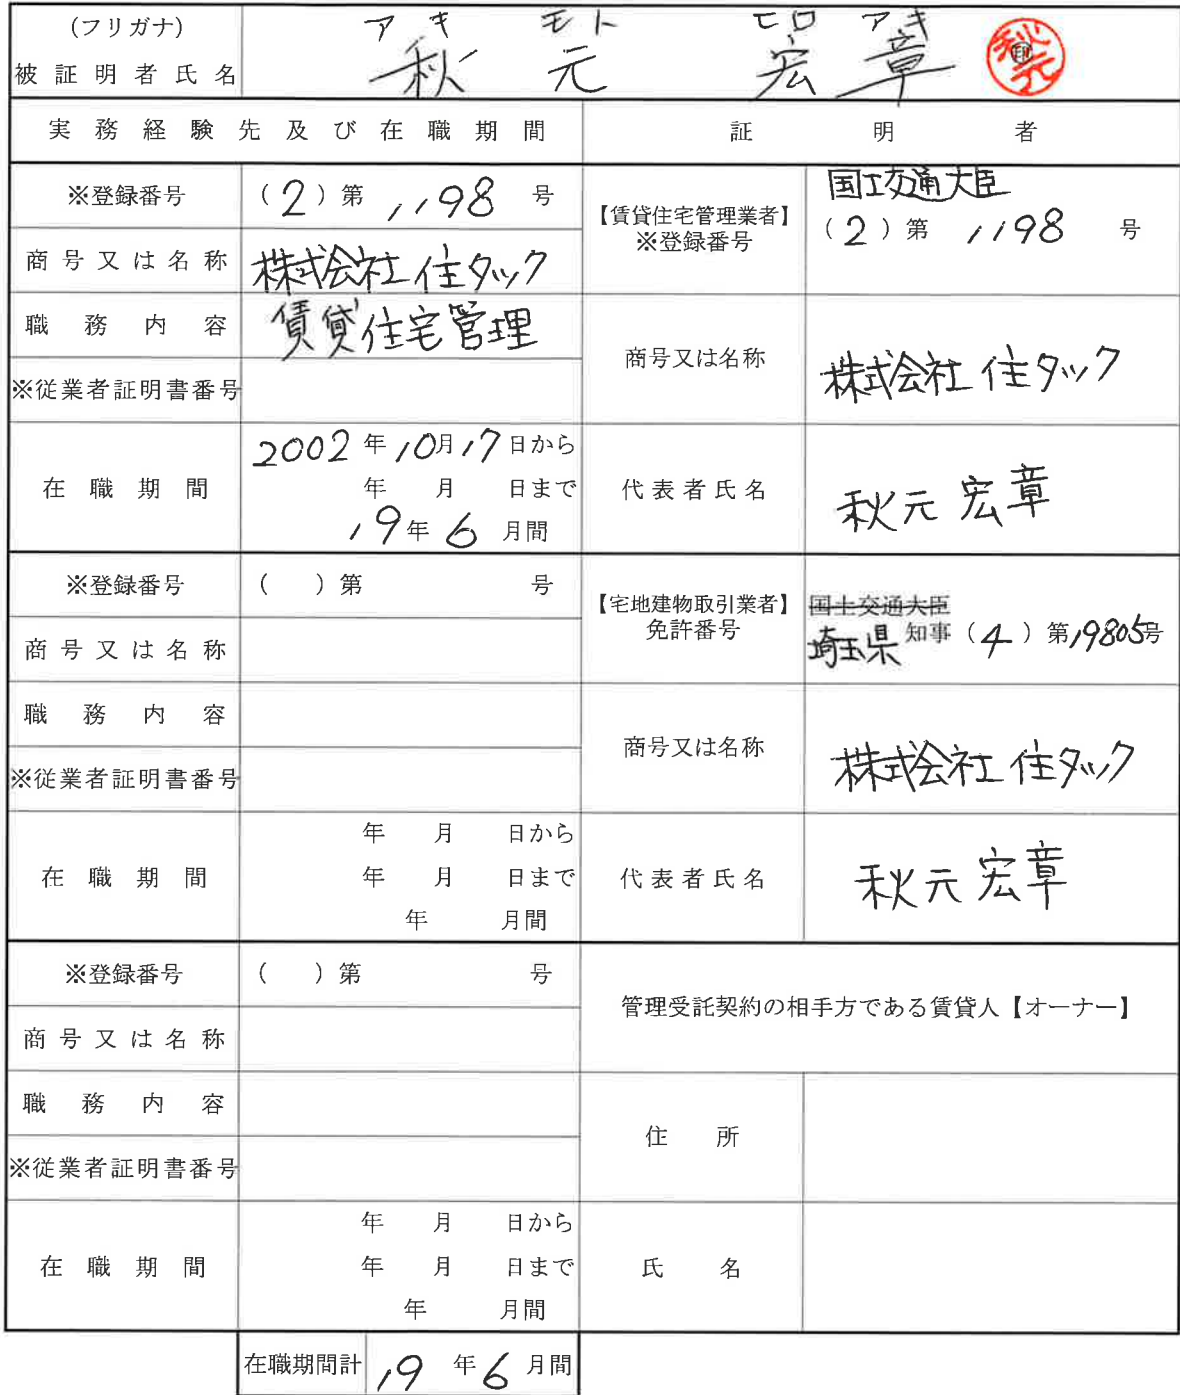 (フリガナ) アキ モト ヒロ アキ
被証明者氏名 秋元 宏章 印 秋元
実務経験先及び在職期間 証明者
※登録番号 (2)第 1198 号
商号又は名称 株式会社住タック
職務内容 賃貸住宅管理
※従業者証明書番号
在職期間 2002年10月17日から
年 月 日まで
19年6月間
【賃貸住宅管理業者】
※登録番号
国土交通大臣
(2)第 1198 号
商号又は名称 株式会社住タック
代表者氏名 秋元宏章
※登録番号 ( )第 号
商号又は名称
職務内容
※従業者証明書番号
在職期間 年 月 日から
年 月 日まで
年 月間
【宅地建物取引業者】
免許番号
国土交通大臣
埼玉県 知事 (4)第19805号
商号又は名称 株式会社住タック
代表者氏名 秋元宏章
※登録番号 ( )第 号
商号又は名称
職務内容
※従業者証明書番号
在職期間 年 月 日から
年 月 日まで
年 月間
管理受託契約の相手方である賃貸人【オーナー】
住所
氏名
在職期間計 19年6月間